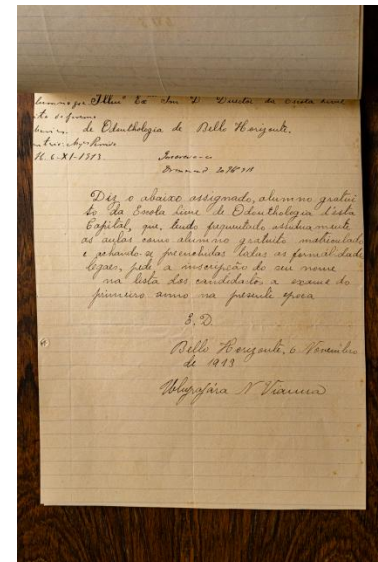 Illmo Exmo Snr D. Director da Escola Livre
de Odonthologia de Bello Horizonte.
6-XI-1913
Diz o abaixo assignado, alumno gratui
to da Escola livre de Odonthologia d'esta
Capital, que, tendo frequentado assiduamente
as aulas como alumno gratuito matriculado
e achando-se preenchidas todas as formalidade
legaes, pede a inscripção do seu nome
na lista dos candidatos a exame do
primeiro anno na presente epoca
E. D.
Bello Horizonte, 6 Novembro
de 1913
N Vianna